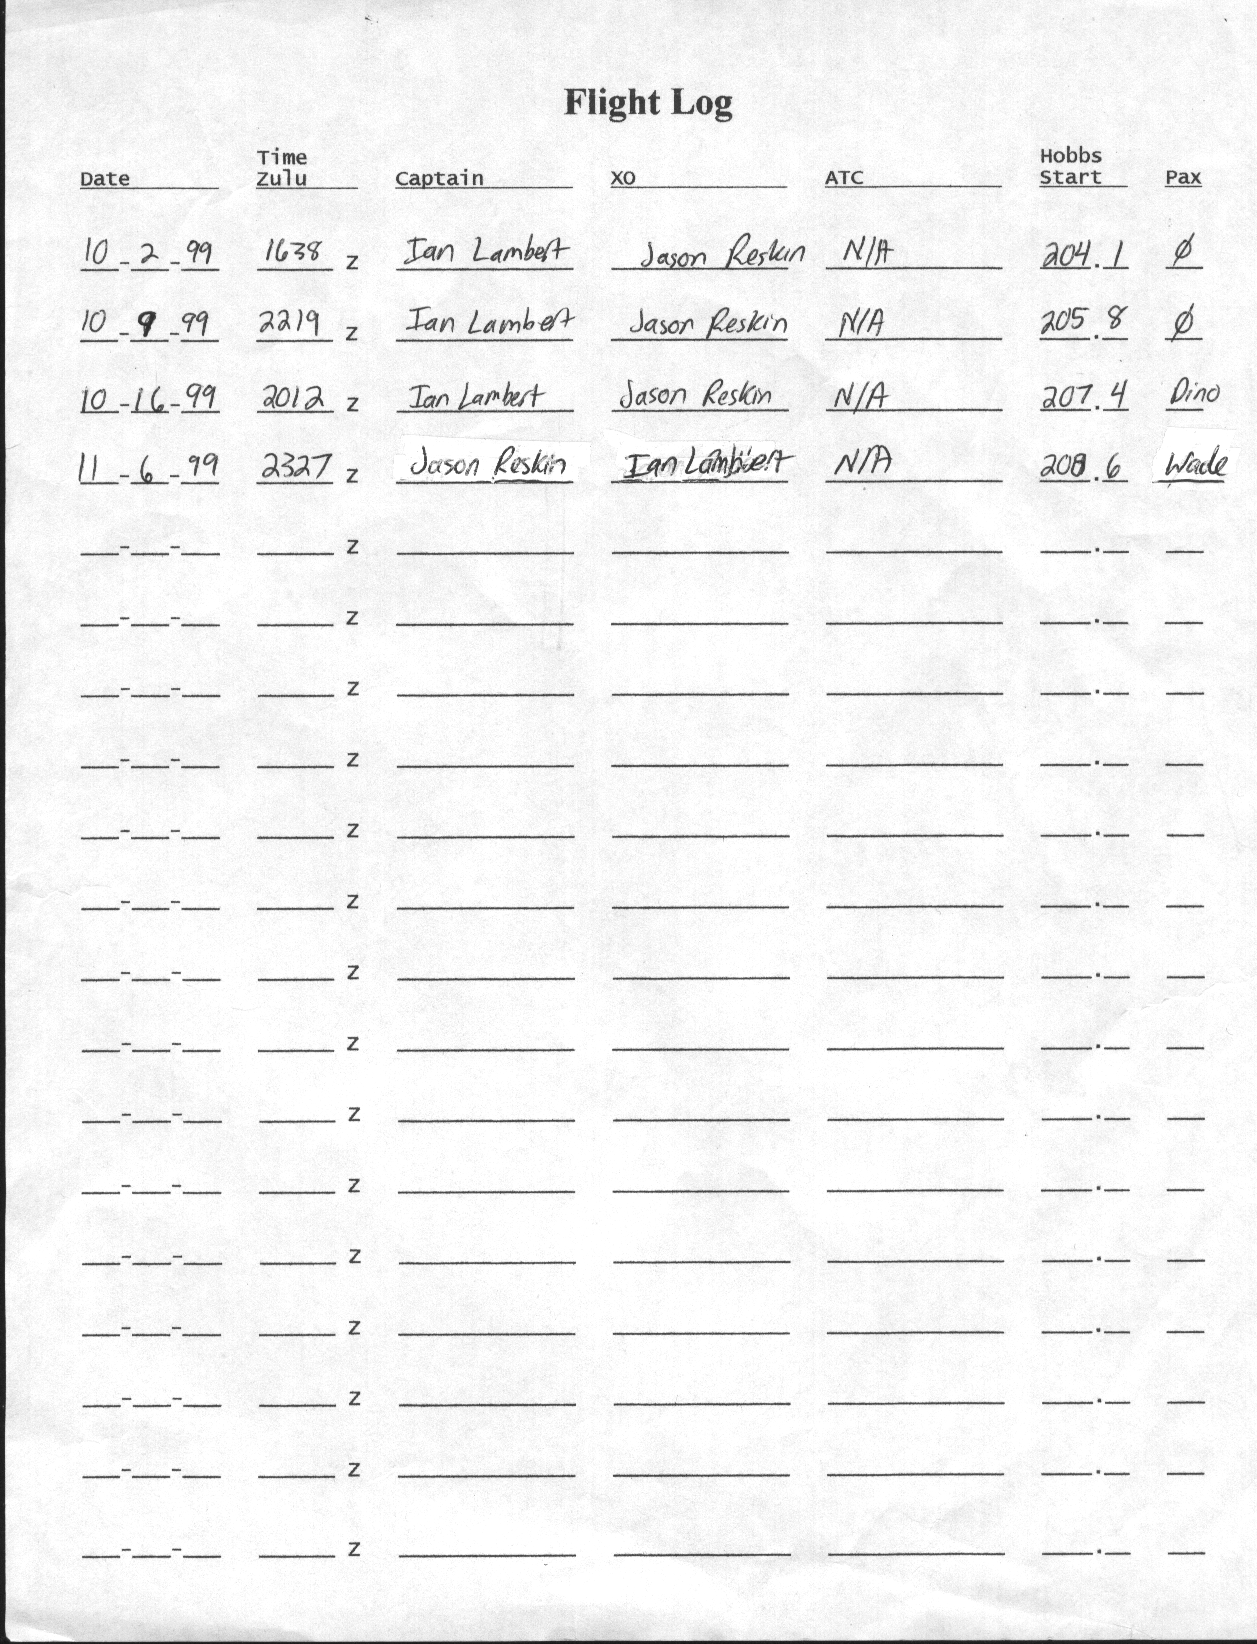 Flight Log
Date Time Zulu Captain XO ATC Hobbs Start Pax
10 - 2 - 99 1638 Z Ian Lambert Jason Reskin N/A 204.1 Ø
10 - 9 - 99 2219 Z Ian Lambert Jason Reskin N/A 205.8 Ø
10 - 16 - 99 2012 Z Ian Lambert Jason Reskin N/A 207.4 Dino
11 - 6 - 99 2327 Z Jason Reskin Ian Lambert N/A 208.6 Wade
- - Z .
- - Z .
- - Z .
- - Z .
- - Z .
- - Z .
- - Z .
- - Z .
- - Z .
- - Z .
- - Z .
- - Z .
- - Z .
- - Z .
- - Z .